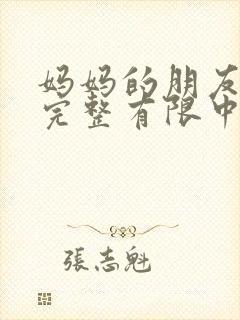 妈妈的朋友
完整有限中
張志魁